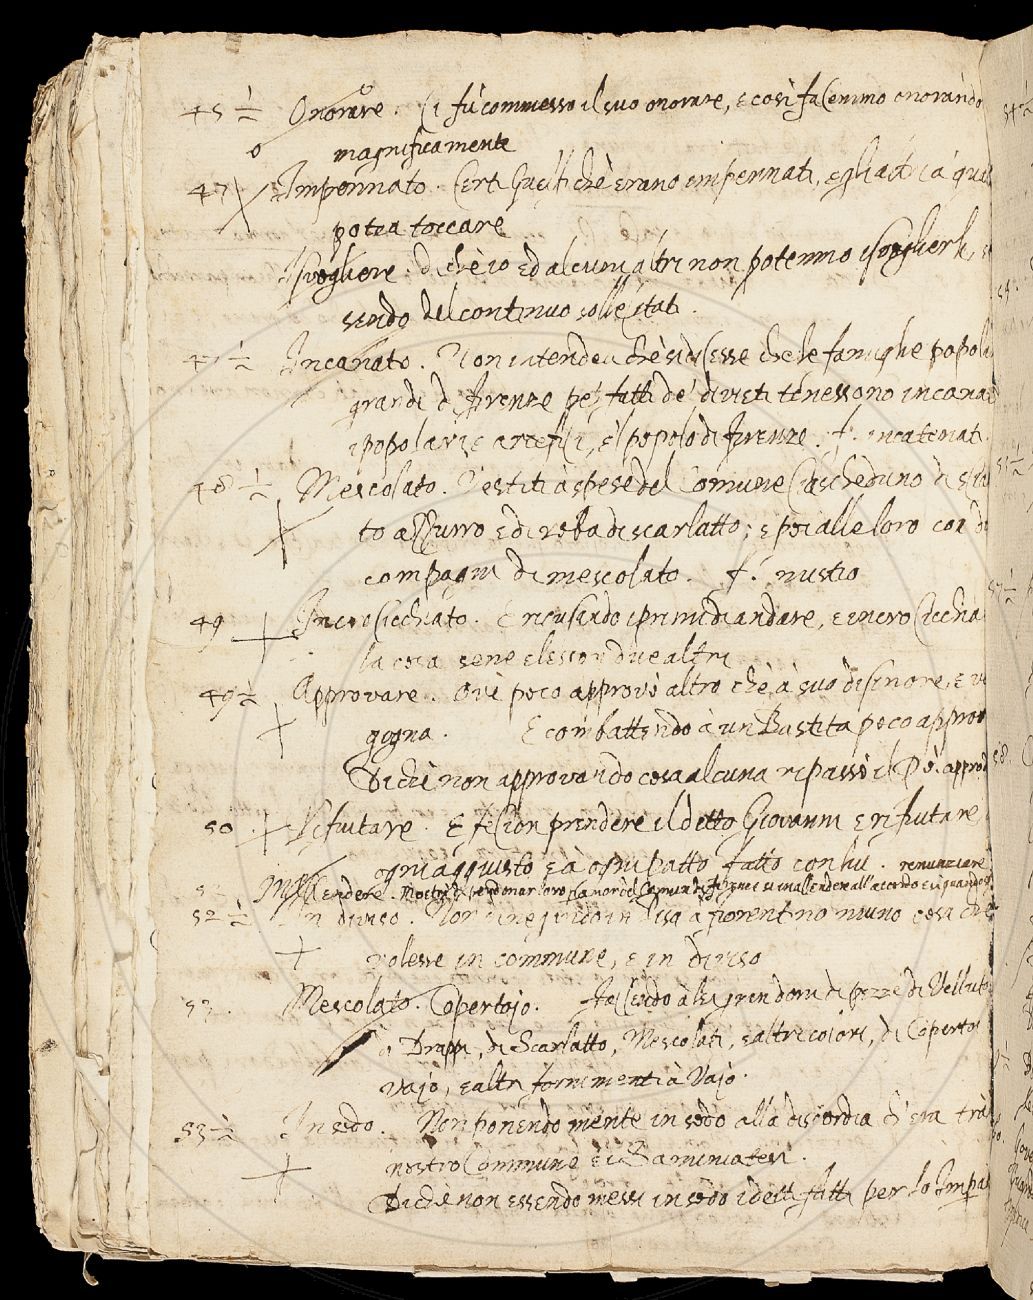 45 ½ Onorare. Ci fù commesso il suo onorare, e così facemmo onorando
magnificamente
47 Impennato. Certi Guelfi che erano impennati, e gli altri à qua
potea toccare
Isvogliere. di che io ed alcuni altri non potemmo isvoglierli, e
sendo del continuo sollecitati.
47 ½ Incanato. Non intendea che si dicesse che le famiglie popola
grandi di firenze pe' fatti de' divieti tenessono incana
i popolari e artefici, e 'l popolo di firenze. f. incatenati
48 ½ Mescolato. Vestiti à spese del Comune ciascheduno di
to azzurro e di roba di scarlatto; e poi alle loro con d
compagni di mescolato. f. mustio
49 Incrosicchiato. E ricusando i primi di andare, e incrosicchia
la cosa sene elesson due altri
49 ½ Approvare. Ove poco approvò altro che à suo disinore, e ve
gogna. E combattendo à un Bastita poco approv
Di che non approvando cosa alcuna ripassò il Pò. approd
50 Rifiutare. E fecion prendere il detto Giovanni e rifiutare
ogni acquisto e à ogni patto fatto con lui. renunziare
52 ½ In diviso. fiorentino niuno cosa che
volesse in commune, e in diviso
53. Mescolato. Copertojo. Facendo à lui gran doni di pezze di Velluto
ò Drappi, di Scarlatto, Mescolati, e altri colori, di Copertoi
Vajo, e altri fornimenti à Vajo.
53 ½ In sodo. Non ponendo mente in sodo alla discordia ch'era trà
nostro Commune e i Saminiatesi.
Di che non essendo messi in sodo i detti fatti per lo Impa